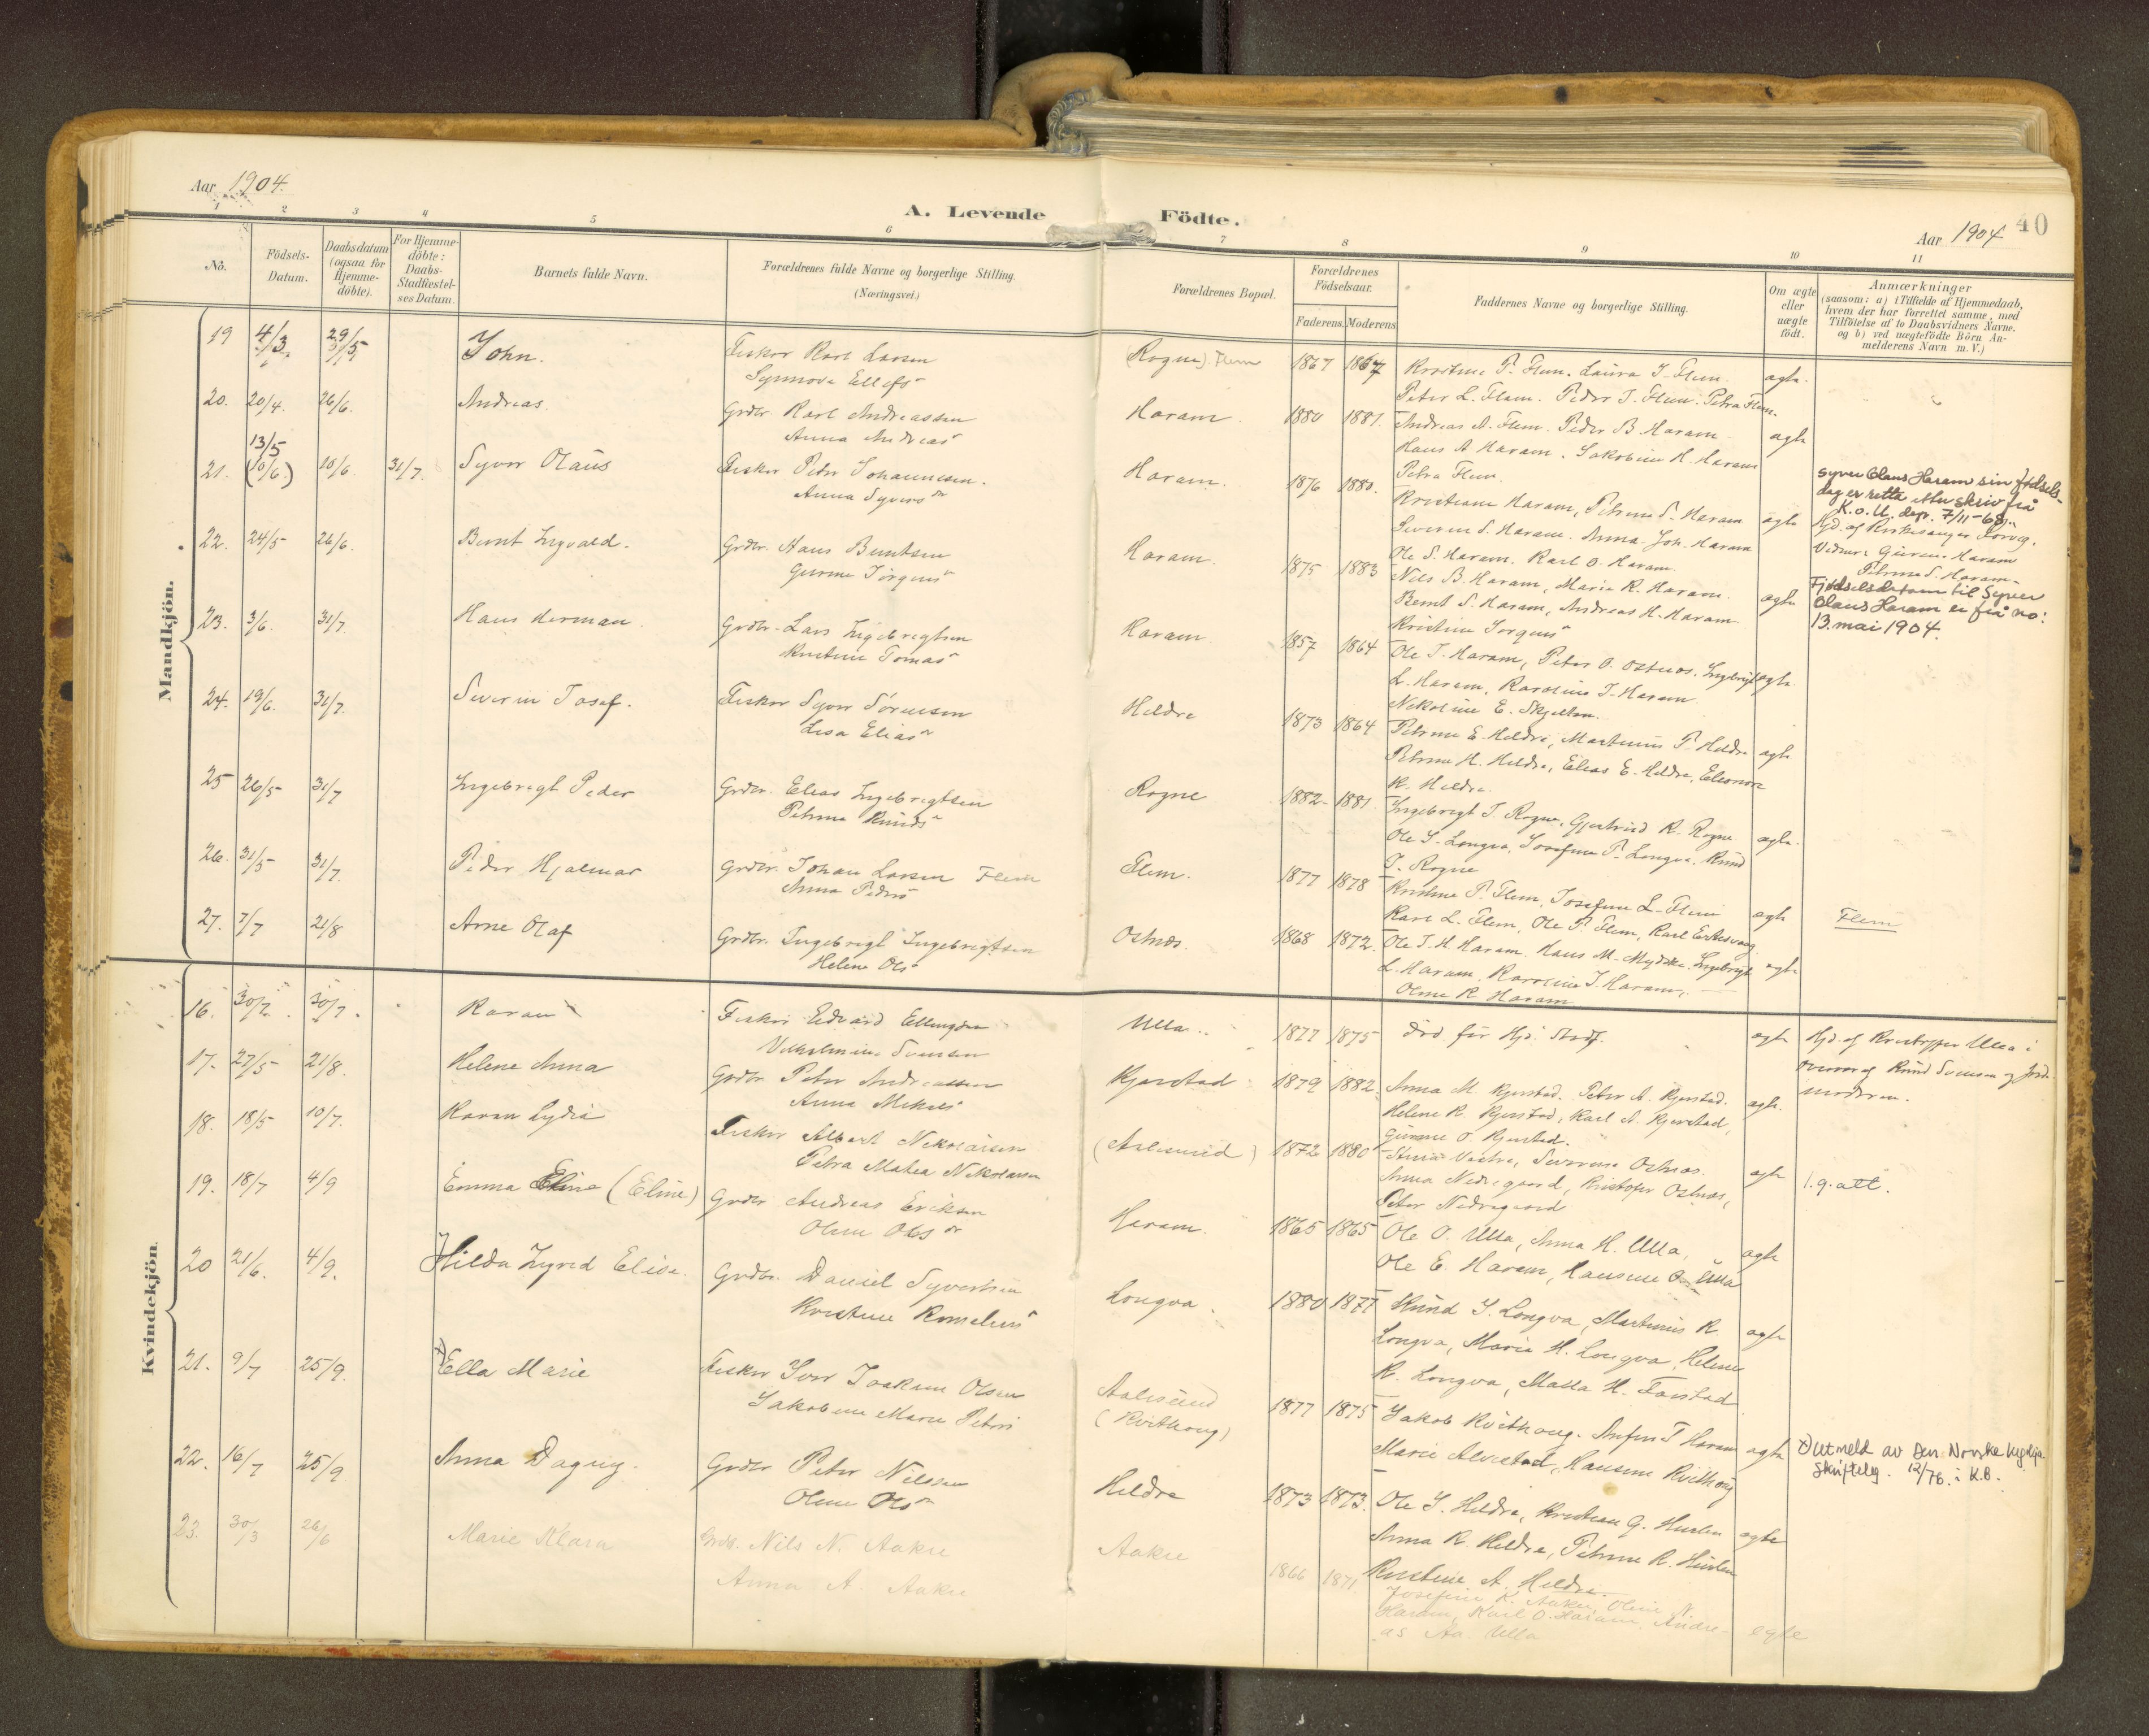 Aar 1904.
A. Levende Födte.
Aar 1904
40
1 2 3 4 5 6 7 8 9 10 11
No.
Födsels-Datum.
Daabsdatum (ogsaa for Hjemme-döbte).
For Hjemme-döbte: Daabs-Stadfæstel-ses Datum.
Barnets fulde Navn.
Forældrenes fulde Navne og borgerlige Stilling.
(Næringsvei.)
Forældrenes Bopæl.
Forældrenes Födselsaar.
Faderens. Moderens
Faddernes Navne og borgerlige Stilling.
Om ægte eller uægte födt.
Anmærkninger
(saasom: a) i Tilfælde af Hjemmedaab,
hvem der har forrettet samme, med
Tilföielse af to Daabsvidners Navne.
og b) ved uægtefödte Börn An-
melderens Navn m. V.)
Mandkjön.
19 4/3 29/5 John. Fisker Karl Larsen (Rogne). Flem 1867 1867 Kristine P. Flem. Laura J. Flem. ægte.
Synnøve Ellefs Peter L. Flem. Peder J. Flem. Petra Flem.
20. 20/4. 26/6. Andreas. Grdbr. Karl Andreassen Haram 1880 1881. Andreas A. Flem. Peder B. Haram ægte
Anna Andreas Hans A Haram. Jakobine H. Haram
Petra Flem.
13/5
21. (10/6.) 10/6. 31/7. Syver Olaus Fisker Peter Johannesen. Haram. 1876 1880. Kristiane Haram, Petrine S. Haram ægte
Anna Syversdr Severin S. Haram. Anna Joh. Haram
Ole S. Haram. Karl O. Haram.
Syver Olaus Haram sin fødsels-
dag er retta etter skriv frå
K.o.U. dep. 7/11-68.
Hjd. af Kirkesanger
Vidner: Haram
Petrine S. Haram.
Fødselsdatoen til Syver
Olaus Haram er frå no:
13. mai 1904.
22. 24/5 26/6. Bernt Ingvald. Grdbr. Hans Berntsen Haram. 1875 1883 Nils B. Haram, Marie K. Haram. ægte
Gurine Jørgens Bernt S. Haram, Andreas H. Haram
Kristine Jørgens
23. 3/6. 31/7. Hans Herman. Grdbr. Lars Ingebrigtsen Haram. 1857 1864 Ole J. Haram, Peter O. Ostnæs. Ingebrigt ægte
Kristine Tomas L. Haram, Karoline J. Haram
Nikoline E. Skjelten.
24. 19/6. 31/7. Severin Josef. Fisker Syver Sørensen Hildre 1873 1864 Petrine E. Hildre, Martinus P. Hildre ægte
Lisa Elias Petrine H. Hildre, Elias E. Hildre, Eleonore
K. Hildre.
25 26/5 31/7 Ingebrigt Peder Grdbr. Elias Ingebrigtsen Rogne 1882 1881. Ingebrigt J. Rogne, Gjertrud K. Rogne ægte.
Petrine Knuds Ole J. Longva, Josefine P. Longva. Knud
J. Rogne
26. 31/5 31/7. Peder Hjalmar Grdbr. Johan Larsen Flem Flem. 1877 1878 Kristine P. Flem, Josefine L. Flem ægte Flem
Anna Peders Karl L. Flem, Ole P. Flem, Karl Eriksvaag
27. 7/7 21/8 Arne Olaf Grdbr. Ingebrigt Ingebrigtsen Ostnæs. 1868 1872. Ole J. H. Haram, Hans M. Myklebu. Ingebrigt ægte
Helene Ols L. Haram, Karoline J. Haram,
Oline K. Haram
Kvindekjön.
16. 30/7. 30/7. Karen Fisker Edvard Ellingsen Ulla 1877 1875 død før Hjd. Stadf. ægte Hjd. af Kristoffer Ulla i
Vilhelmine Svensen overvær af Knud Svensen og Jord-
moderen.
17. 27/5 21/8. Helene Anna Grdbr. Peter Andreassen Kjerstad 1879 1882. Anna M. Kjerstad. Peter A. Kjerstad. ægte.
Anna Mikals Helene K. Kjerstad, Karl A. Kjerstad,
Gurine O. Kjerstad.
18. 18/5 10/7. Karen Lydia Fisker Albert Nikolaisen (Aalesund) 1872 1880 Vestre, Severine Ostnæs. ægte 1.g. att.
Petra Matea Nikolaisen Anna Nedregaard, Kristofer Ostnæs,
Peter Nedregaard
19. 18/7 4/9 Emma Eline (Eline) Grdbr Andreas Eriksen Haram. 1865 1865 Ole O. Ulla, Anna H. Ulla, ægte
Oline Olsdr Ole E. Haram, Hansine O. Ulla
20 21/6. 4/9. Hilda Ingrid Elise. Grdbr. Daniel Syvertsen Longva. 1880 1877 Knud J. Longva, Martinus K. ægte
Kristine Kornelius Longva, Marie H. Longva, Helene
K. Longva, Malla H. Farstad
21. 9/7 25/9. x) Ella Marie Fisker Iver Joakim Olsen Aalesund 1877 1875 Jakob Kvithoug. Anfin T Haram ægte x) Utmeld av Den Norske kyrkja
Jakobine Marie Peters (Kvithoug) Marie Alvestad, Hansine Kvithoug Skriftleg. 12/76. i K.B.
22. 16/7 25/9 Anna Dagny. Grdbr Peter Nilssen Hildre 1873 1873. Ole J. Hildre, Kristian G. Huslen ægte
Oline Ols Anna K. Hildre, Petrine K. Huslen
Kristine A. Hildre.
23. 30/3 26/6 Marie Klara Grdbr. Nils N. Aakre Aakre 1866 1871. Josefine K. Aakre, Oline N.
Anna A. Aakre Haram, Karl O. Haram, Andre- egte
as Aa. Ulla